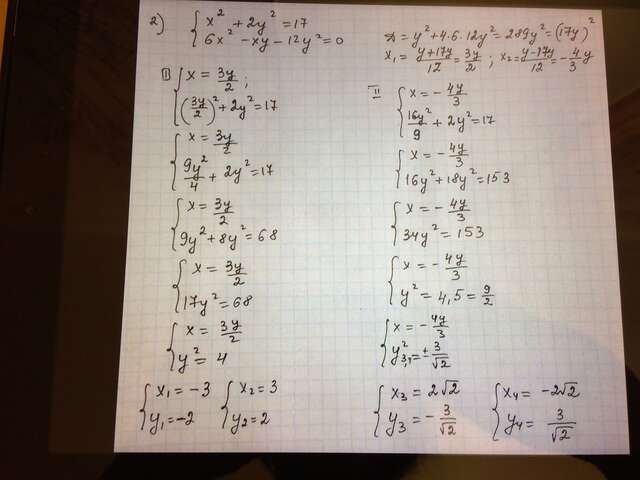 2) { x² + 2y² = 17
6x² - xy - 12y² = 0
D = y² + 4·6·12y² = 289y² = (17y)²
x₁ = (y+17y)/12 = 3y/2 ; x₂ = (y-17y)/12 = -4y/3
I { x = 3y/2 ;
(3y/2)² + 2y² = 17
{ x = 3y/2
9y²/4 + 2y² = 17
{ x = 3y/2
9y² + 8y² = 68
{ x = 3y/2
17y² = 68
{ x = 3y/2
y² = 4
{ x₁ = -3 { x₂ = 3
y₁ = -2 y₂ = 2
II { x = -4y/3
16y²/9 + 2y² = 17
{ x = -4y/3
16y² + 18y² = 153
{ x = -4y/3
34y² = 153
{ x = -4y/3
y² = 4,5 = 9/2
{ x = -4y/3
y² = ± 3/√2
{ x₃ = 2√2 { x₄ = -2√2
y₃ = -3/√2 y₄ = 3/√2